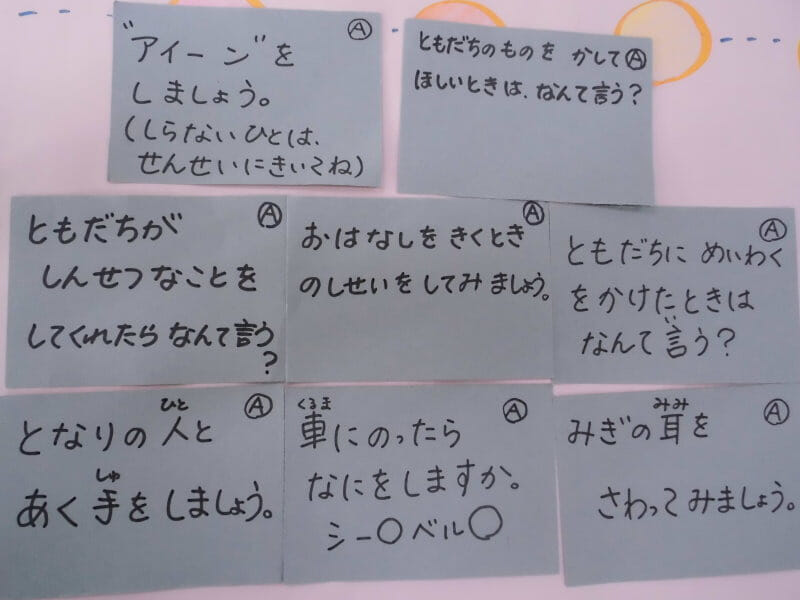 Ⓐ
"アイーン"を
しましょう。
(しらないひとは、
せんせいにきいてね)
ともだちのものを かして Ⓐ
ほしいときは、なんて言う?
Ⓐ
ともだちが
しんせつなことを
してくれたら なんて言う
?
Ⓐ
おはなしを きくとき
のしせいを してみ ましょう。
Ⓐ
ともだちに めいわく
をかけたときは
い
なんて 言う?
Ⓐ
ひと
となりの 人と
しゅ
あく手を しましょう。
Ⓐ
くるま
車にのったら
なにをしますか。
シー○ベル○
Ⓐ
みみ
みぎの 耳を
さわってみましょう。